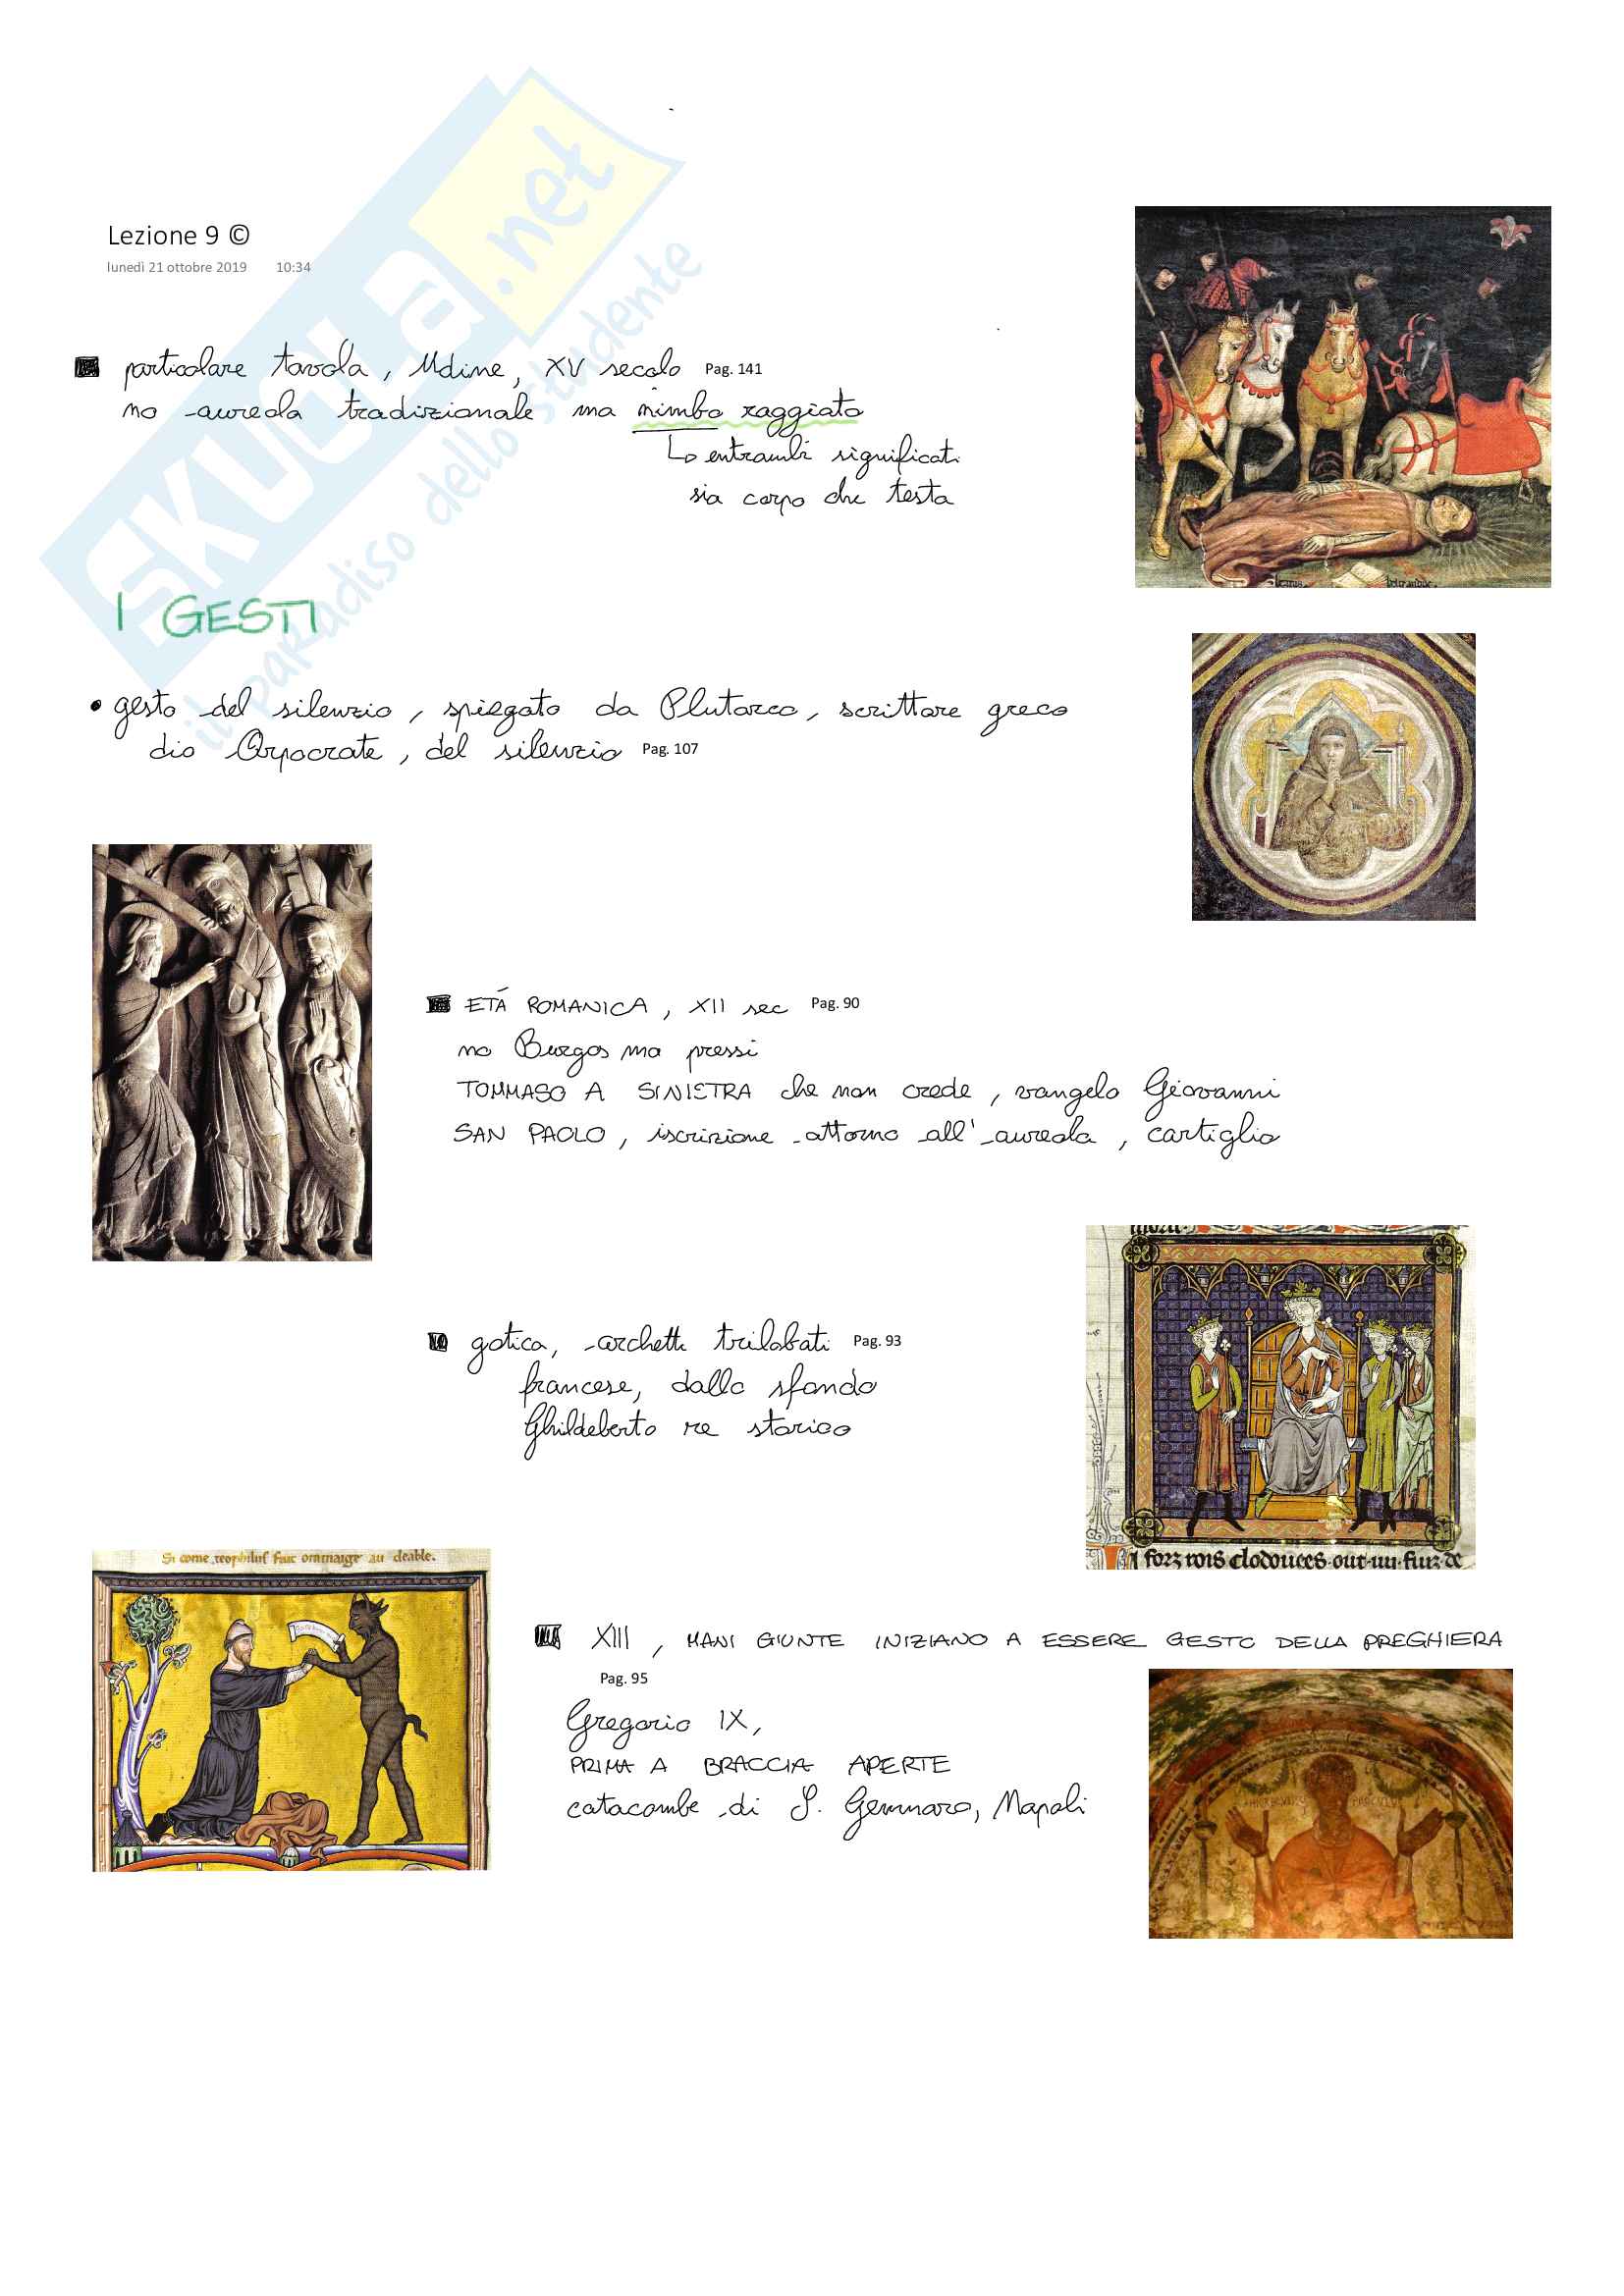 SKUOLA.net
il paradiso dello studente
Lezione 9 ©
lunedì 21 ottobre 2019 10:34
particolare tavola, Udine, XV secolo Pag. 141
no aureola tradizionale ma nimbo raggiato
entrambi significati
sia corpo che testa
I GESTI
• gesto del silenzio, spiegato da Plutarco, scrittore greco
dio Arpocrate, del silenzio Pag. 107
ETÁ ROMANICA, XII sec Pag. 90
no Burgos ma pressi
TOMMASO A SINISTRA che non crede, vangelo Giovanni
SAN PAOLO, iscrizione attorno all'aureola, cartiglio
gotica, archetti trilobati Pag. 93
francese, dallo sfondo
Ghildeberto re storico
forz rois clodouees out un fiuz de
Si come teophilus fait ommaige au deable.
XIII, MANI GIUNTE INIZIANO A ESSERE GESTO DELLA PREGHIERA
Pag. 95
Gregorio IX,
PRIMA A BRACCIA APERTE
catacombe di S. Gennaro, Napoli